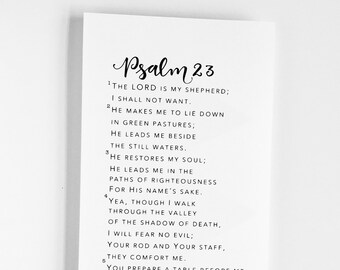 Psalm 23
1 The LORD is my shepherd;
I shall not want.
2 He makes me to lie down
in green pastures;
He leads me beside
the still waters.
3 He restores my soul;
He leads me in the
paths of righteousness
For His name's sake.
4 Yea, though I walk
through the valley
of the shadow of death,
I will fear no evil;
Your rod and Your staff,
they comfort me.
5 You prepare a table before me